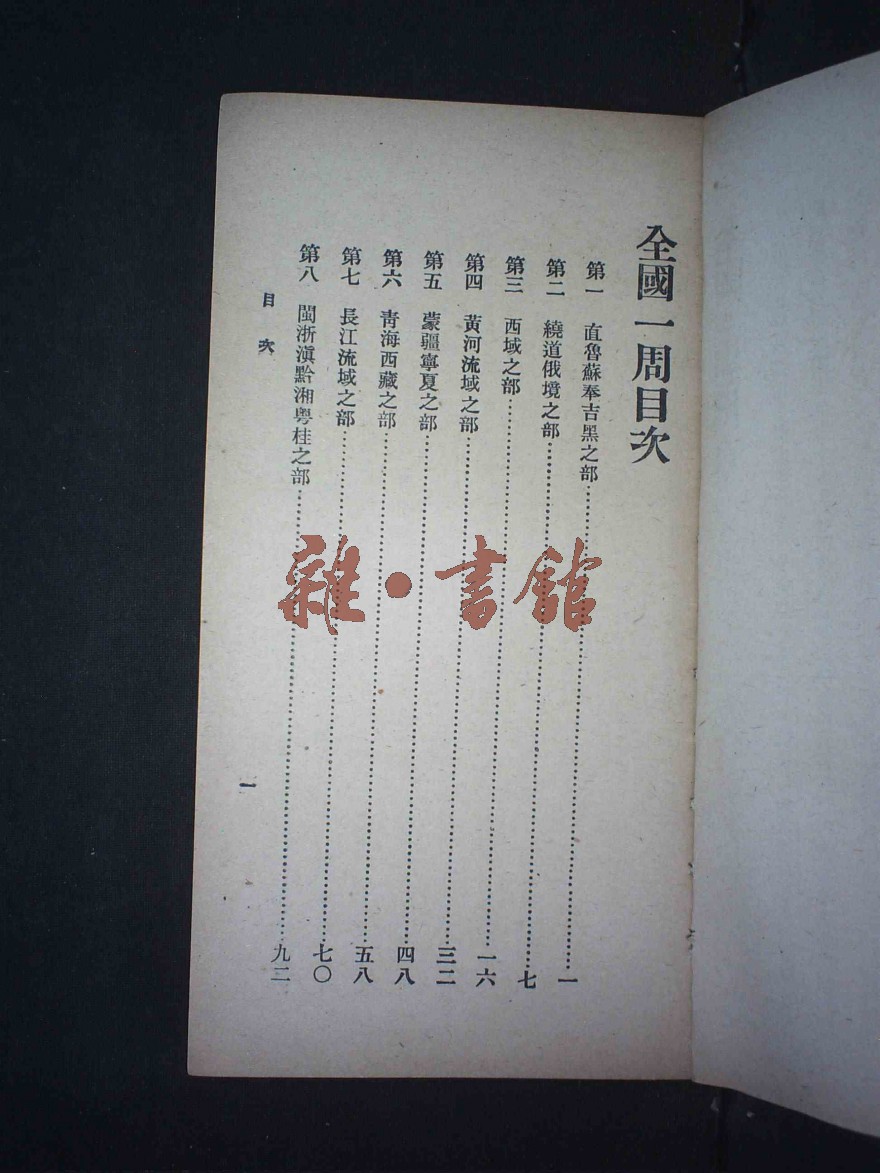 全國一周目次
第一 直魯蘇奉吉黑之部…………一
第二 繞道俄境之部…………七
第三 西域之部…………一六
第四 黃河流域之部…………三二
第五 蒙疆寧夏之部…………四八
第六 靑海西藏之部…………五八
第七 長江流域之部…………七〇
第八 閩浙滇黔湘粵桂之部…………九二
目次
一
雜·書館